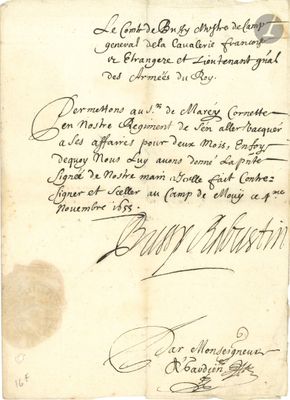 Le Comte de Bussy Mestre de Camp
general de la Cavalerie francoise
et Etrangere et Lieutenant gnãl
des Armées du Roy.
Permettons au S.r de Maréy Cornette
en Nostre Regiment de S'en aller vacquer
a Ses affaires pour deux Mois, En foy
dequoy Nous Luy avons donné La pnte
Signée de Nostre main Icelle fait Contre
Signer et Sceller au Camp de Mouy ce 4.me
Novembre 1655.
Bussy Rabutin
Par Monseigneur
16 f